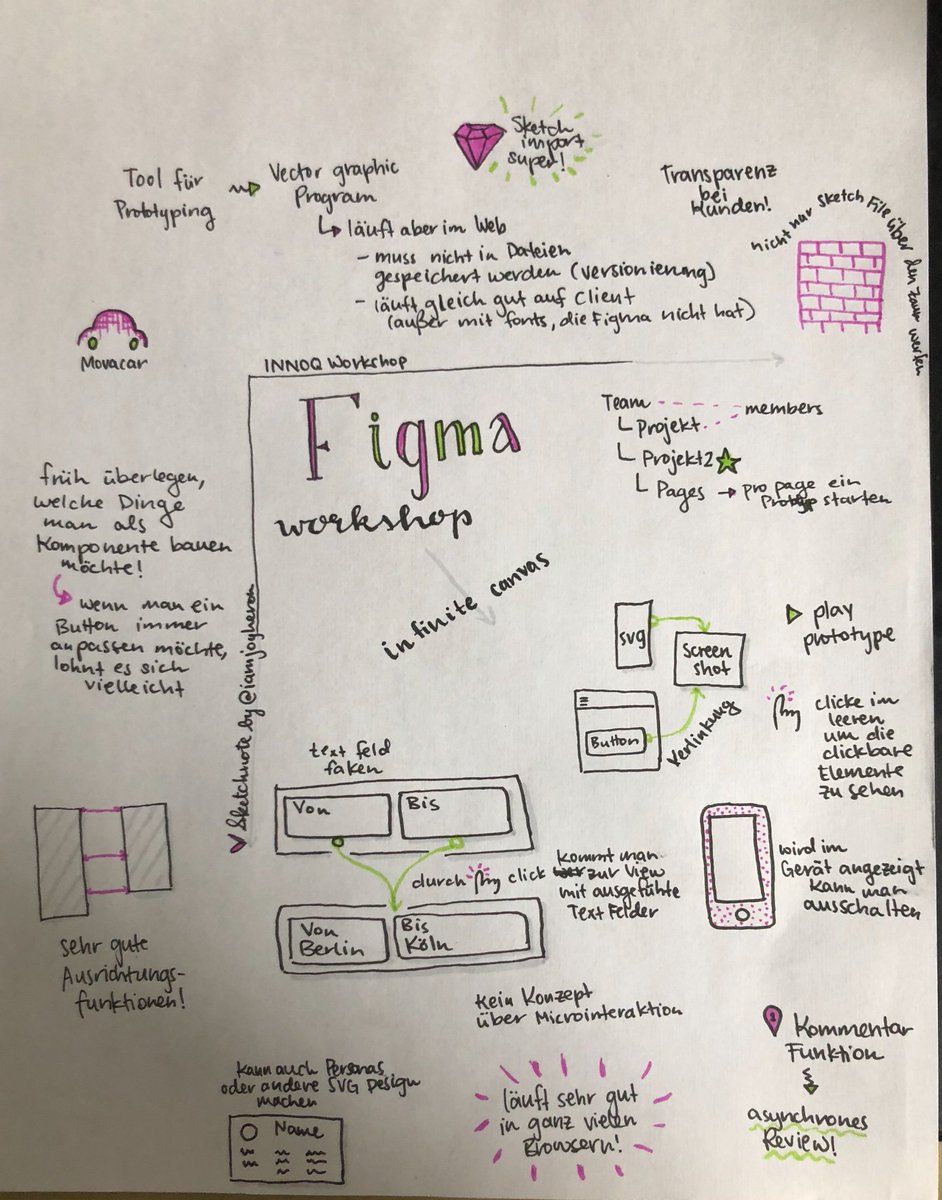 Sketch
import
super!
Tool für
Prototyping
Vector graphic
Program
läuft aber im Web
- muss nicht in Dateien
gespeichert werden (Versionierung)
- läuft gleich gut auf Client
(außer mit fonts, die Figma nicht hat)
Transparenz
bei
Kunden!
nicht nur Sketch File über den Zaun werfen
Movacar
INNOQ Workshop
Figma
workshop
♥ Sketchnote by @iamjoyheron
infinite canvas
Team
members
Projekt
Projekt2
Pages → pro page ein
starten
früh überlegen,
welche Dinge
man als
Komponente bauen
möchte!
wenn man ein
Button immer
anpassen möchte,
lohnt es sich
vielleicht
svg
Screen
shot
Button
Verlinkung
play
prototype
clicke im
leeren
um die
clickbare
Elemente
zu sehen
text feld
faken
Von
Bis
durch
click
kommt man
zur View
mit ausgefühte
Text Felder
Von
Berlin
Bis
Köln
wird im
Gerät angezeigt
kann man
ausschalten
sehr gute
Ausrichtungs-
funktionen!
Kein Konzept
über Microinteraktion
Kommentar
Funktion
asynchrones
Review!
kann auch Personas
oder andere SVG Design
machen
Name
läuft sehr gut
in ganz vielen
Browsern!